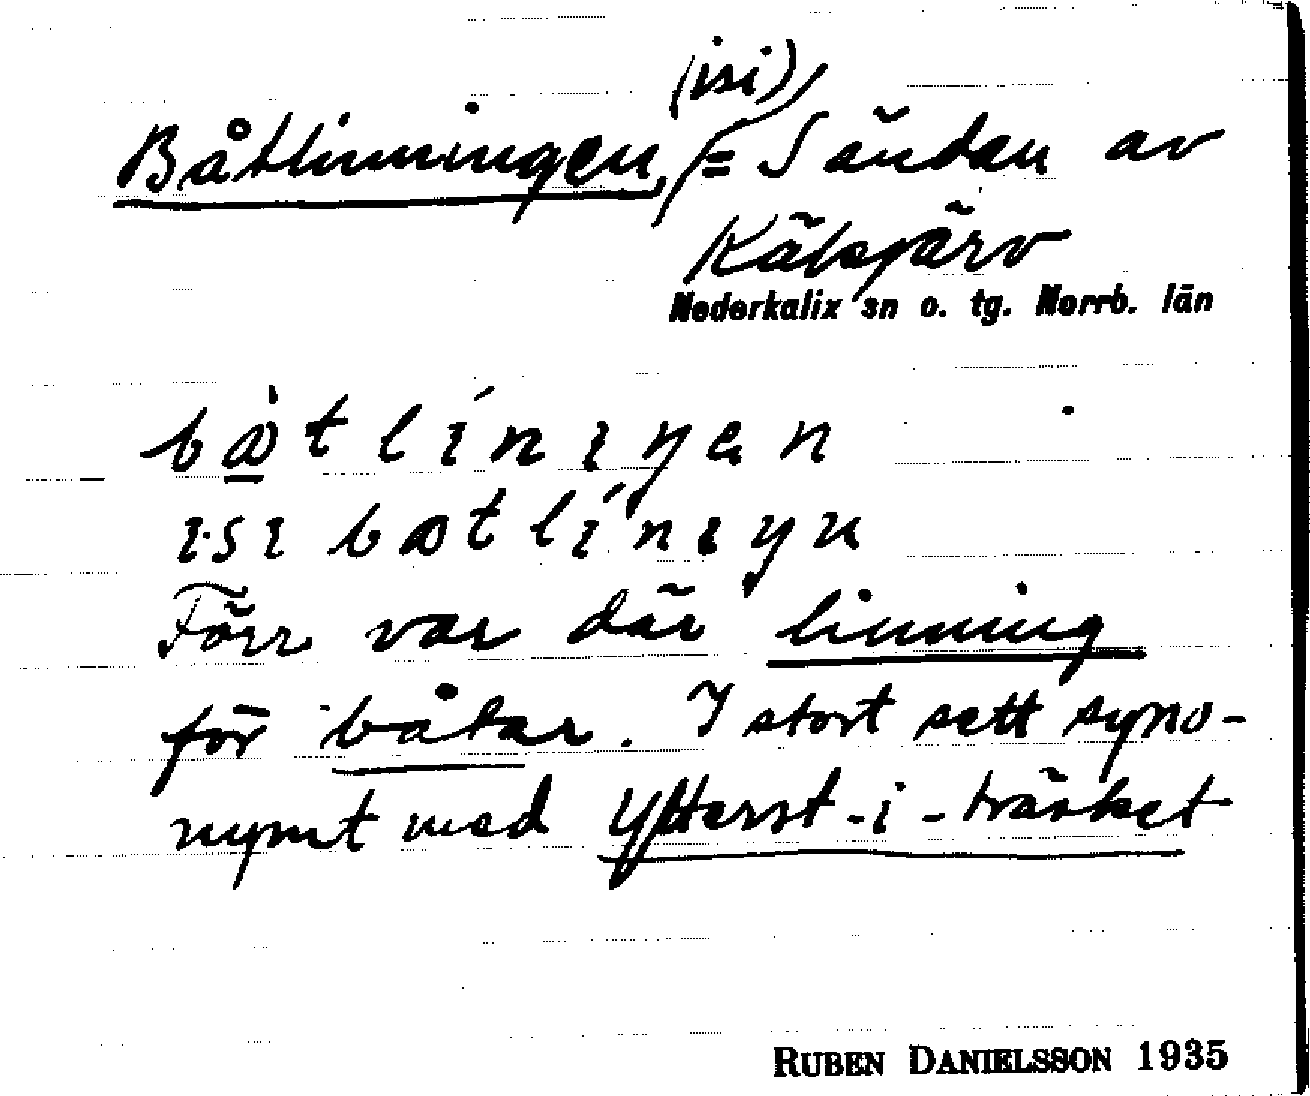 (isi)
Båtlinningen, = S ändan av
Kälsjärv
Nederkalix sn o. tg. Norrb. län
bå̀tlíniŋen
isi båtlíniŋu
Förr var där linning
för båtar. I stort sett syno-
nymt med Ytterst-i-träsket
RUBEN DANIELSSON 1935